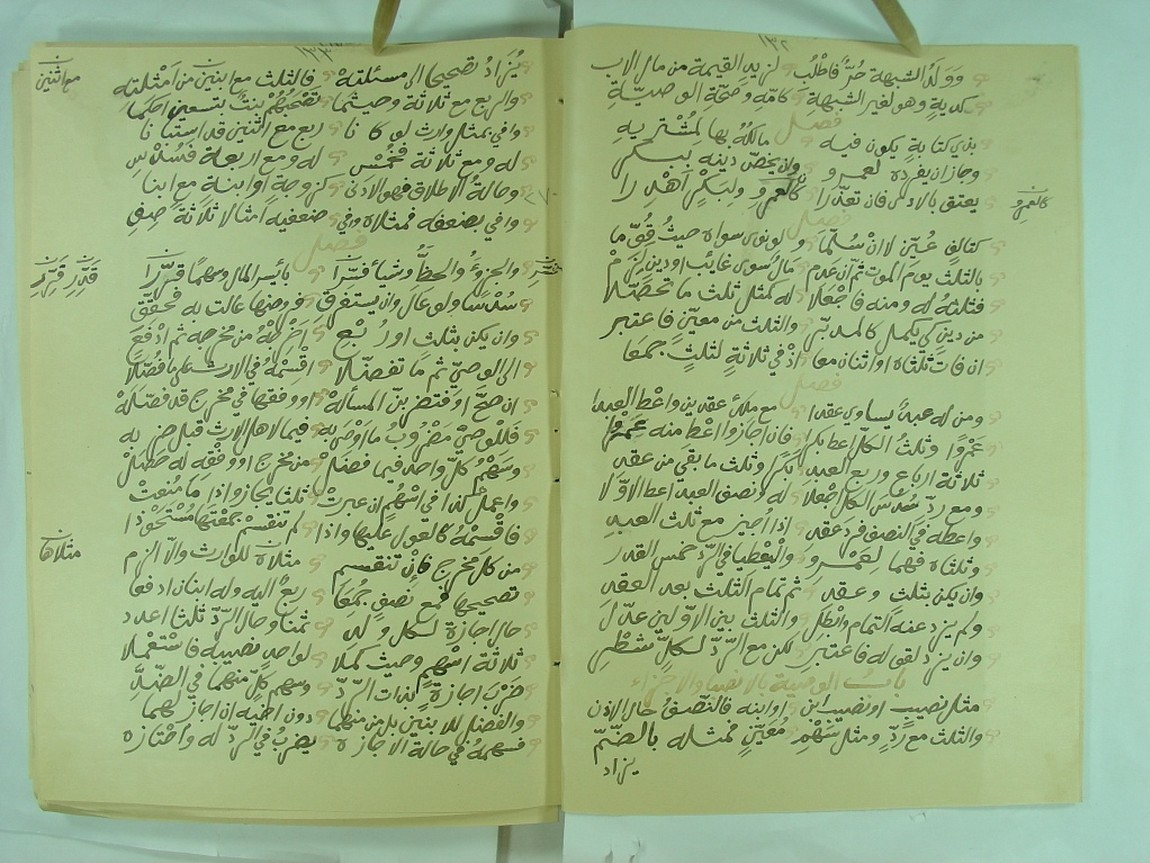 ١٣٢
وولد الشبهة حرٌّ فاطْلُب لزيد القيمة من مال الاب
كديةٍ وهو لغير الشبهةِ كامّه وصحّة الوصيّةِ
فصل
بذي كتابةٍ يكون فيه مالكُهُ بها لمُشْتريهِ
وجاز ان يفرده لعمرو وان يخصّ دينه ببكر
يعتق بالادا فان تعذّرا كالعمرو ولبكرٍ اهْدرا
كالعمرو
فصل
كتالفٍ عُيّن لا انْ سُلّما ولو نوى سواه حيثُ قُوّما
بالثلث يوم الموت ثم ان عدم مالٌ سوى غايب او دين لزمْ
فثلثهُ له ومنه فاجعلا له كمثل ثلث ما تحصّلا
من دين كي يكمل كالمدبّر والثلث من معيّنٍ فاعتبر
ان فات ثلثاه او اثنان معا اذْ في ثلاثةٍ لثلثٍ جمعا
فصل
ومن له عبدٌ يساوي عقدا مع ملك عقدين واعْط العبدا
عَمْرًوا وثلثُ الكلّ اعط بكرا فان اجازوا اعْط منه عَمْروا
ثلاثة ارباع وربع العبد بكرًا وثلث ما بقي من عقد
ومع ردّ سُدس الكل اجْعلا له ونصف العبد اعط الاوّلا
واعطه في النصف فرد عقد اذا اُجيز مع ثلث العبد
وثلثاه فهما لعَمْروٍ واليُعْطيا في الردّ خمس القدر
وان يكن بثلث وعقد ثم تمام الثلث بعد العقد
ولم يزد عنه التمام وابْطل والثلث بين الاوّلين عدّلَ
وان يزد لقوله فاعتبر لكن مع الرّدّ لكلٍّ شطْر
باب الوصية بالانصبا والاجزاء
مثل نصيب او نصيب ابن او ابنه فالنّصفُ حال الاذن
والثلث مع ردّ ومثل سَهْمٍ مُعيّنٍ فمثله بالضّمّ
يزاد
يُزادُ تصحيحا الى مسئلتهْ فالثلث مع ابنين من امثلته
مع اثنين
والربع مع ثلاثة وحيثما تصْحبُهُمْ بنتٌ بتسعين احكما
وافي بمثل وارث لو كانا ربع مع اثنين قد استبانا
له ومع ثلاثة فخُمْس له ومع اربعة فسُدْس
وحالةُ الاطلاق فهو الادنى كزوجة او ابنة مع ابنا
وافي بضعفه فمثلاه وفي ضعفيه امثالا ثلاثةً صِفِ
فصل
والجزءُ والحظُّ وشيأ فسّرا بأيسر المال وسهمًا قرّرا
قَدِّرِ قَرِّرِ
سُدْسًا ولو عال وان يستغرق فروضها عالت به فحقّق
وان يكن بثلث او ربْع اخرجْهُ من مخرجه ثم ادْفعَ
الى الوصيّ ثم ما تفضّلا اقْسِمْهُ في الارث على ما فُضّلا
ان صحّ او فتضربنّ المسألهْ او وفقها في مخرج قد فصّلهْ
فللوصيّ مضروبُ ما اوصى به فيما لاهل الارث قبل ضربه
وسهْمُ كلّ واحد فيما فضلْ من مخرج او وفقه له حصلْ
واعمل كذا في اسْهمٍ ان عبرتْ ثلثا يجاز واذا ما مُنعتْ
فاقْسمْهُ كالعول عليها واذا لم تنقسمْ جمعتها مُسْتحوذا
من كلّ مخرج فانْ تنقسم مثلاه للوارث والّا الزم
مثلاها
تصحيحها فمع نصفٍ جُمعا ربعٌ اليه وله ابنان ادفعا
حال اجازة لكل ولد ثمنًا وحال الردّ ثلثا اعدد
ثلاثة اسْهمٍ وحيث كملا لواحد نصيبه فاسْتعْملا
ضرْبَ اجازةٍ لذات الردّ وسهم كلّ منهما في الضدّ
والفضل للابنين بل من منهما دون اخيه ان اجاز لهما
فسهمهُ في حالة الاجازه يضربُ في الردّ له واحتازه